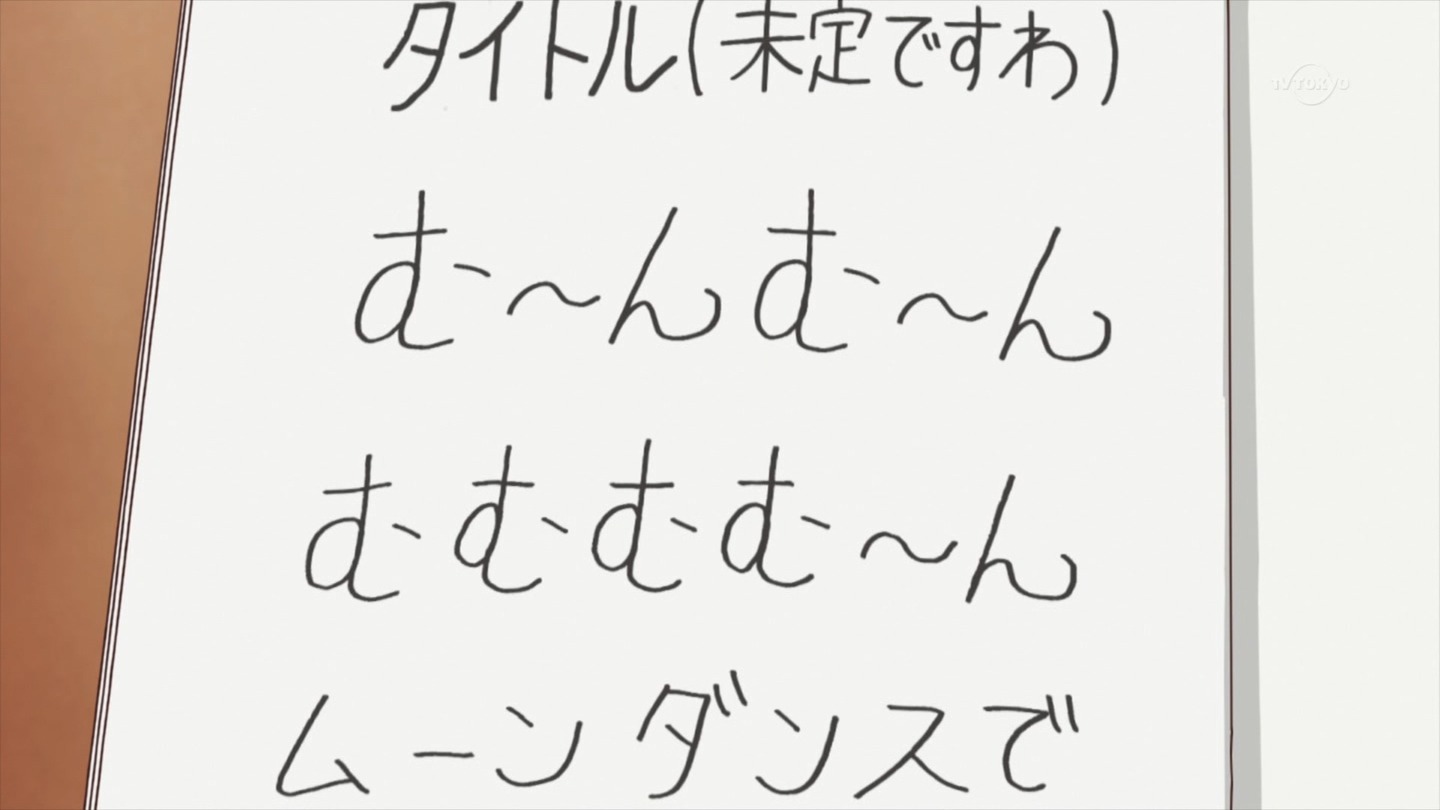 タイトル(未定ですわ)
TV TOKYO
む〜んむ〜ん
むむむむ〜ん
ムーンダンスで